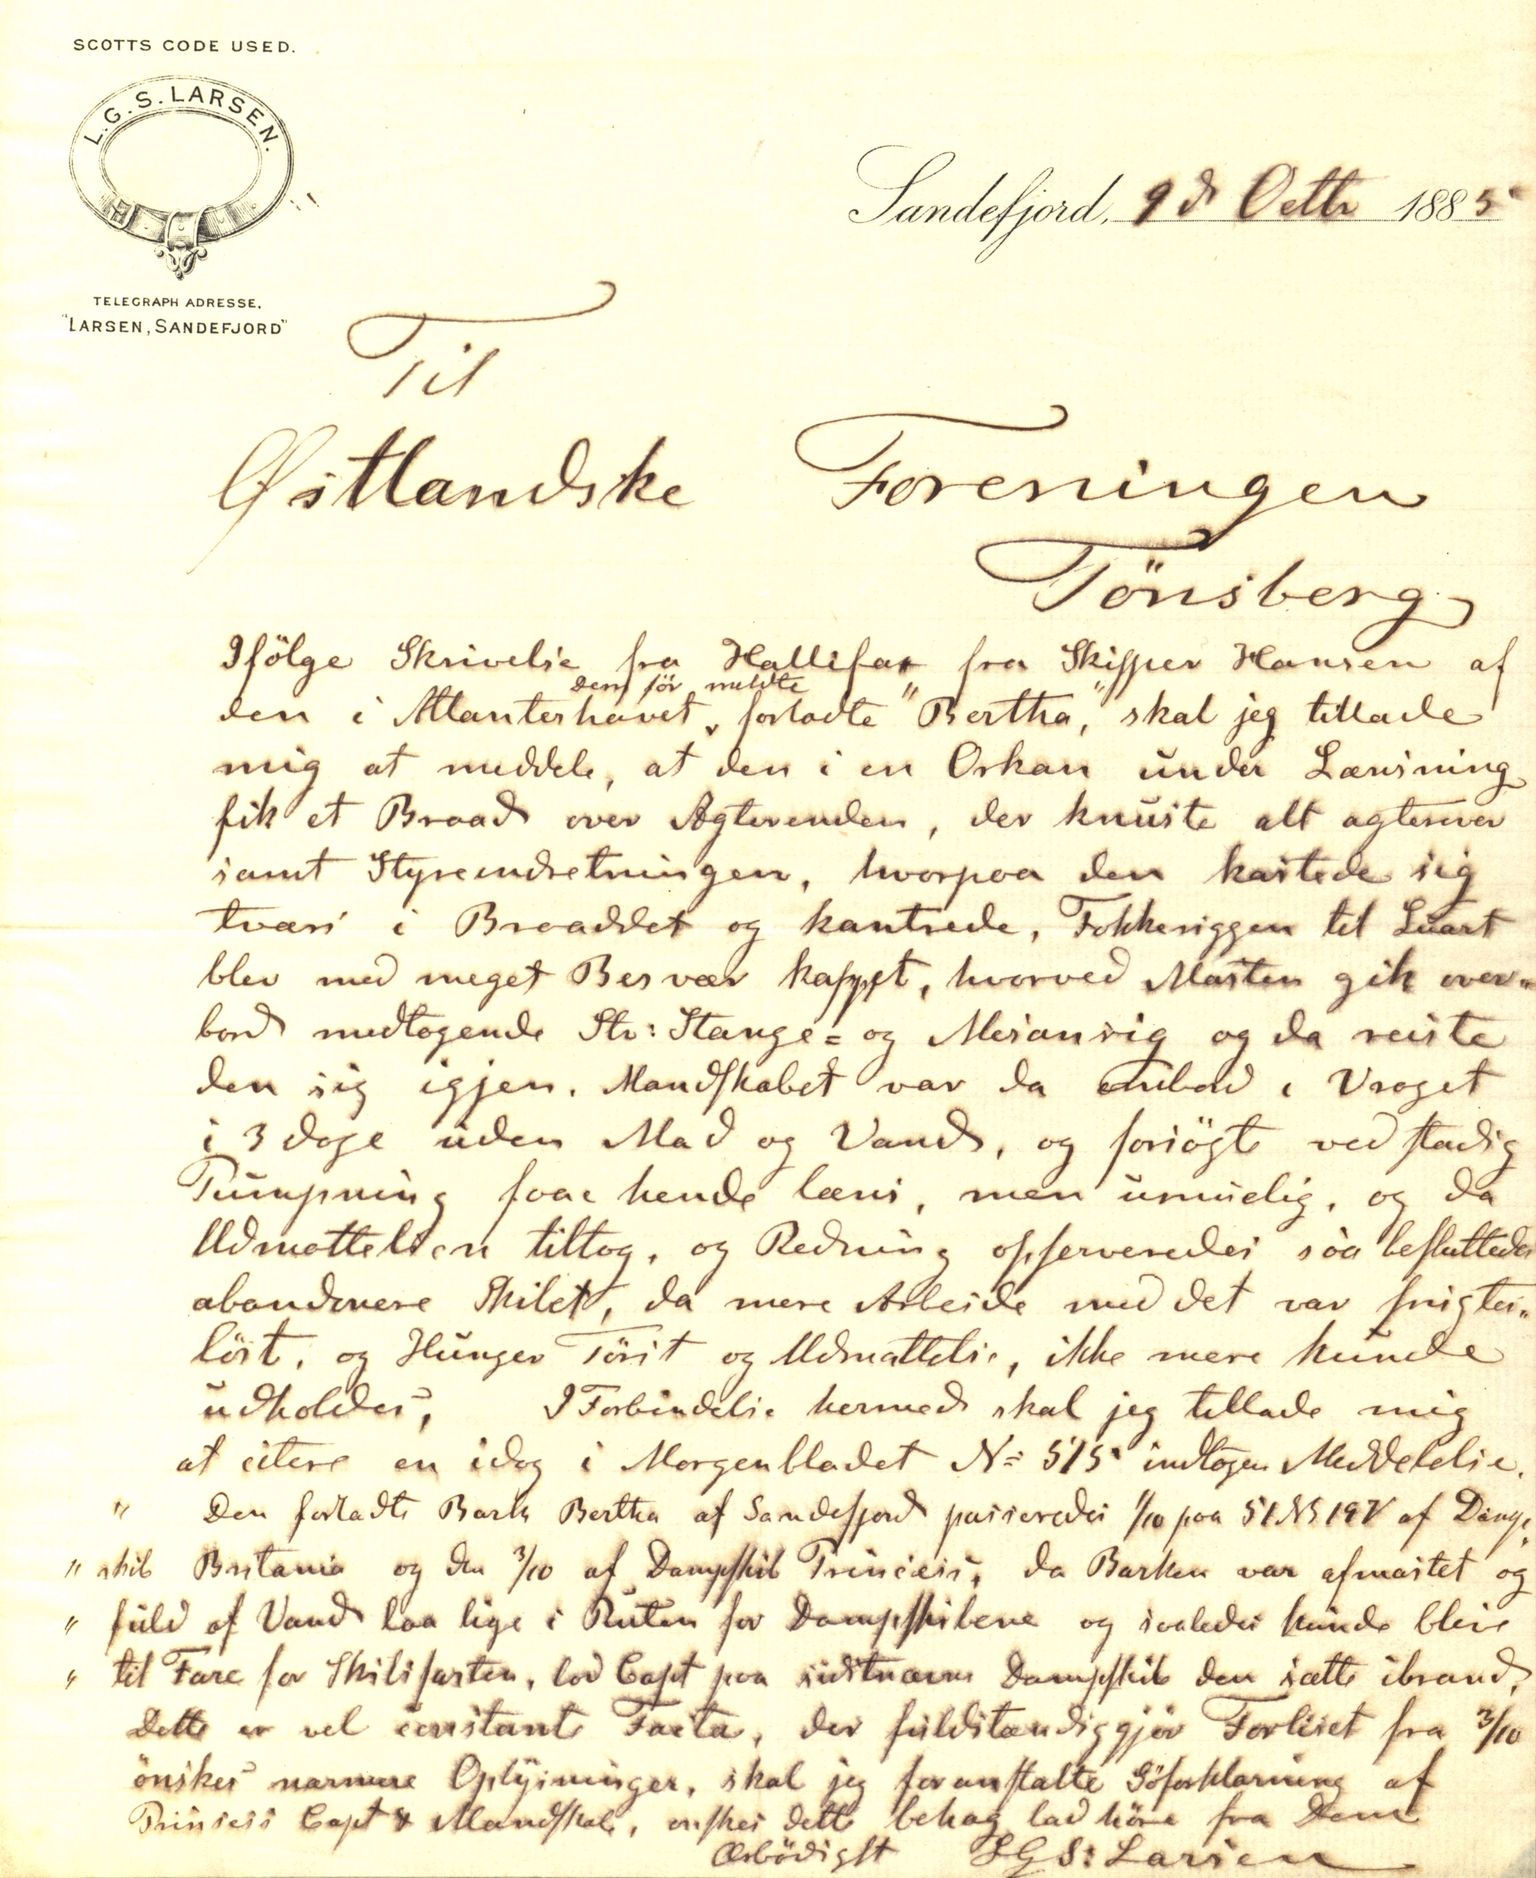 SCOTTS CODE USED.
L.G.S. LARSEN.
TELEGRAPH ADRESSE,
"LARSEN, SANDEFJORD"
Sandefjord, 9 d Octbr 1885
Til
Østlandske Foreningen
Tönsberg
Ifölge Skrivelse fra Hallifax fra Skipper Hansen af
dem för meldte
den i Atlanterhavet forladte "Bertha," skal jeg tillade
mig at meddele, at den i en Orkan under Lænsning
fik et Braad over Agterenden, der knuste alt agterover
samt Styreindretningen, hvorpaa den kastede sig
tværs i Braaddet og kantrede, Fokkeriggen til Luart
blev med meget Besvær kappet, hvorved Masten gik over-
bord medtagende Str: Stange = og Mesanrig og da reiste
den sig igjen. Mandskabet var da ombord i Vraget
i 3 dage uden Mad og Vand, og forsögte ved stadig
Pumpning faae hende læns, men umuelig, og da
Udmattelsen tiltog, og Redning observeredes saa besluttedes
abandonere Skibet, da mere Arbeide med det var frugtes-
löst, og Hunger Törst og Udmattelse, ikke mere kunde
udholdes, I Forbindelse hermed skal jeg tillade mig
at citere en idag i Morgenbladet No 515 indtagen Meddelelse.
" Den forladte Bark Bertha af Sandefjord passeredes 1/10 paa 51 N 19 V af Damp-
" skib Britania og den 3/10 af Dampskib Princess, da Barken var afmastet og
" fuld af Vand laa lige i Ruten for Dampskibene og saaledes kunde blive
" til Fare for Skibsfarten, lod Capt paa sidstnævn Dampskib den sætte ibrand,
Dette er vel constante Facta, der fuldstændiggjör Forliset fra 3/10
önskes nærmere Oplysninger, skal jeg foranstalte Söforklaring af
Prinsess Capt & Mandskab, önskes dette behag lad höre fra Dem
Ærbödigst LGS: Larsen